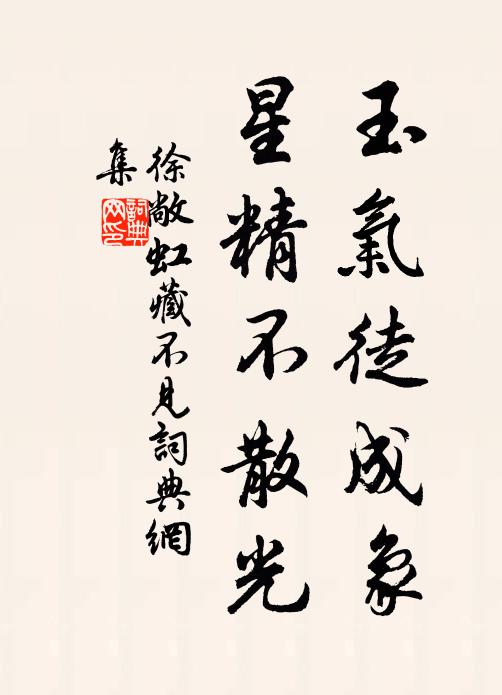 玉氣徒成象
星精不散光
徐敞虹藏不見詞典網
集
詞典
网印